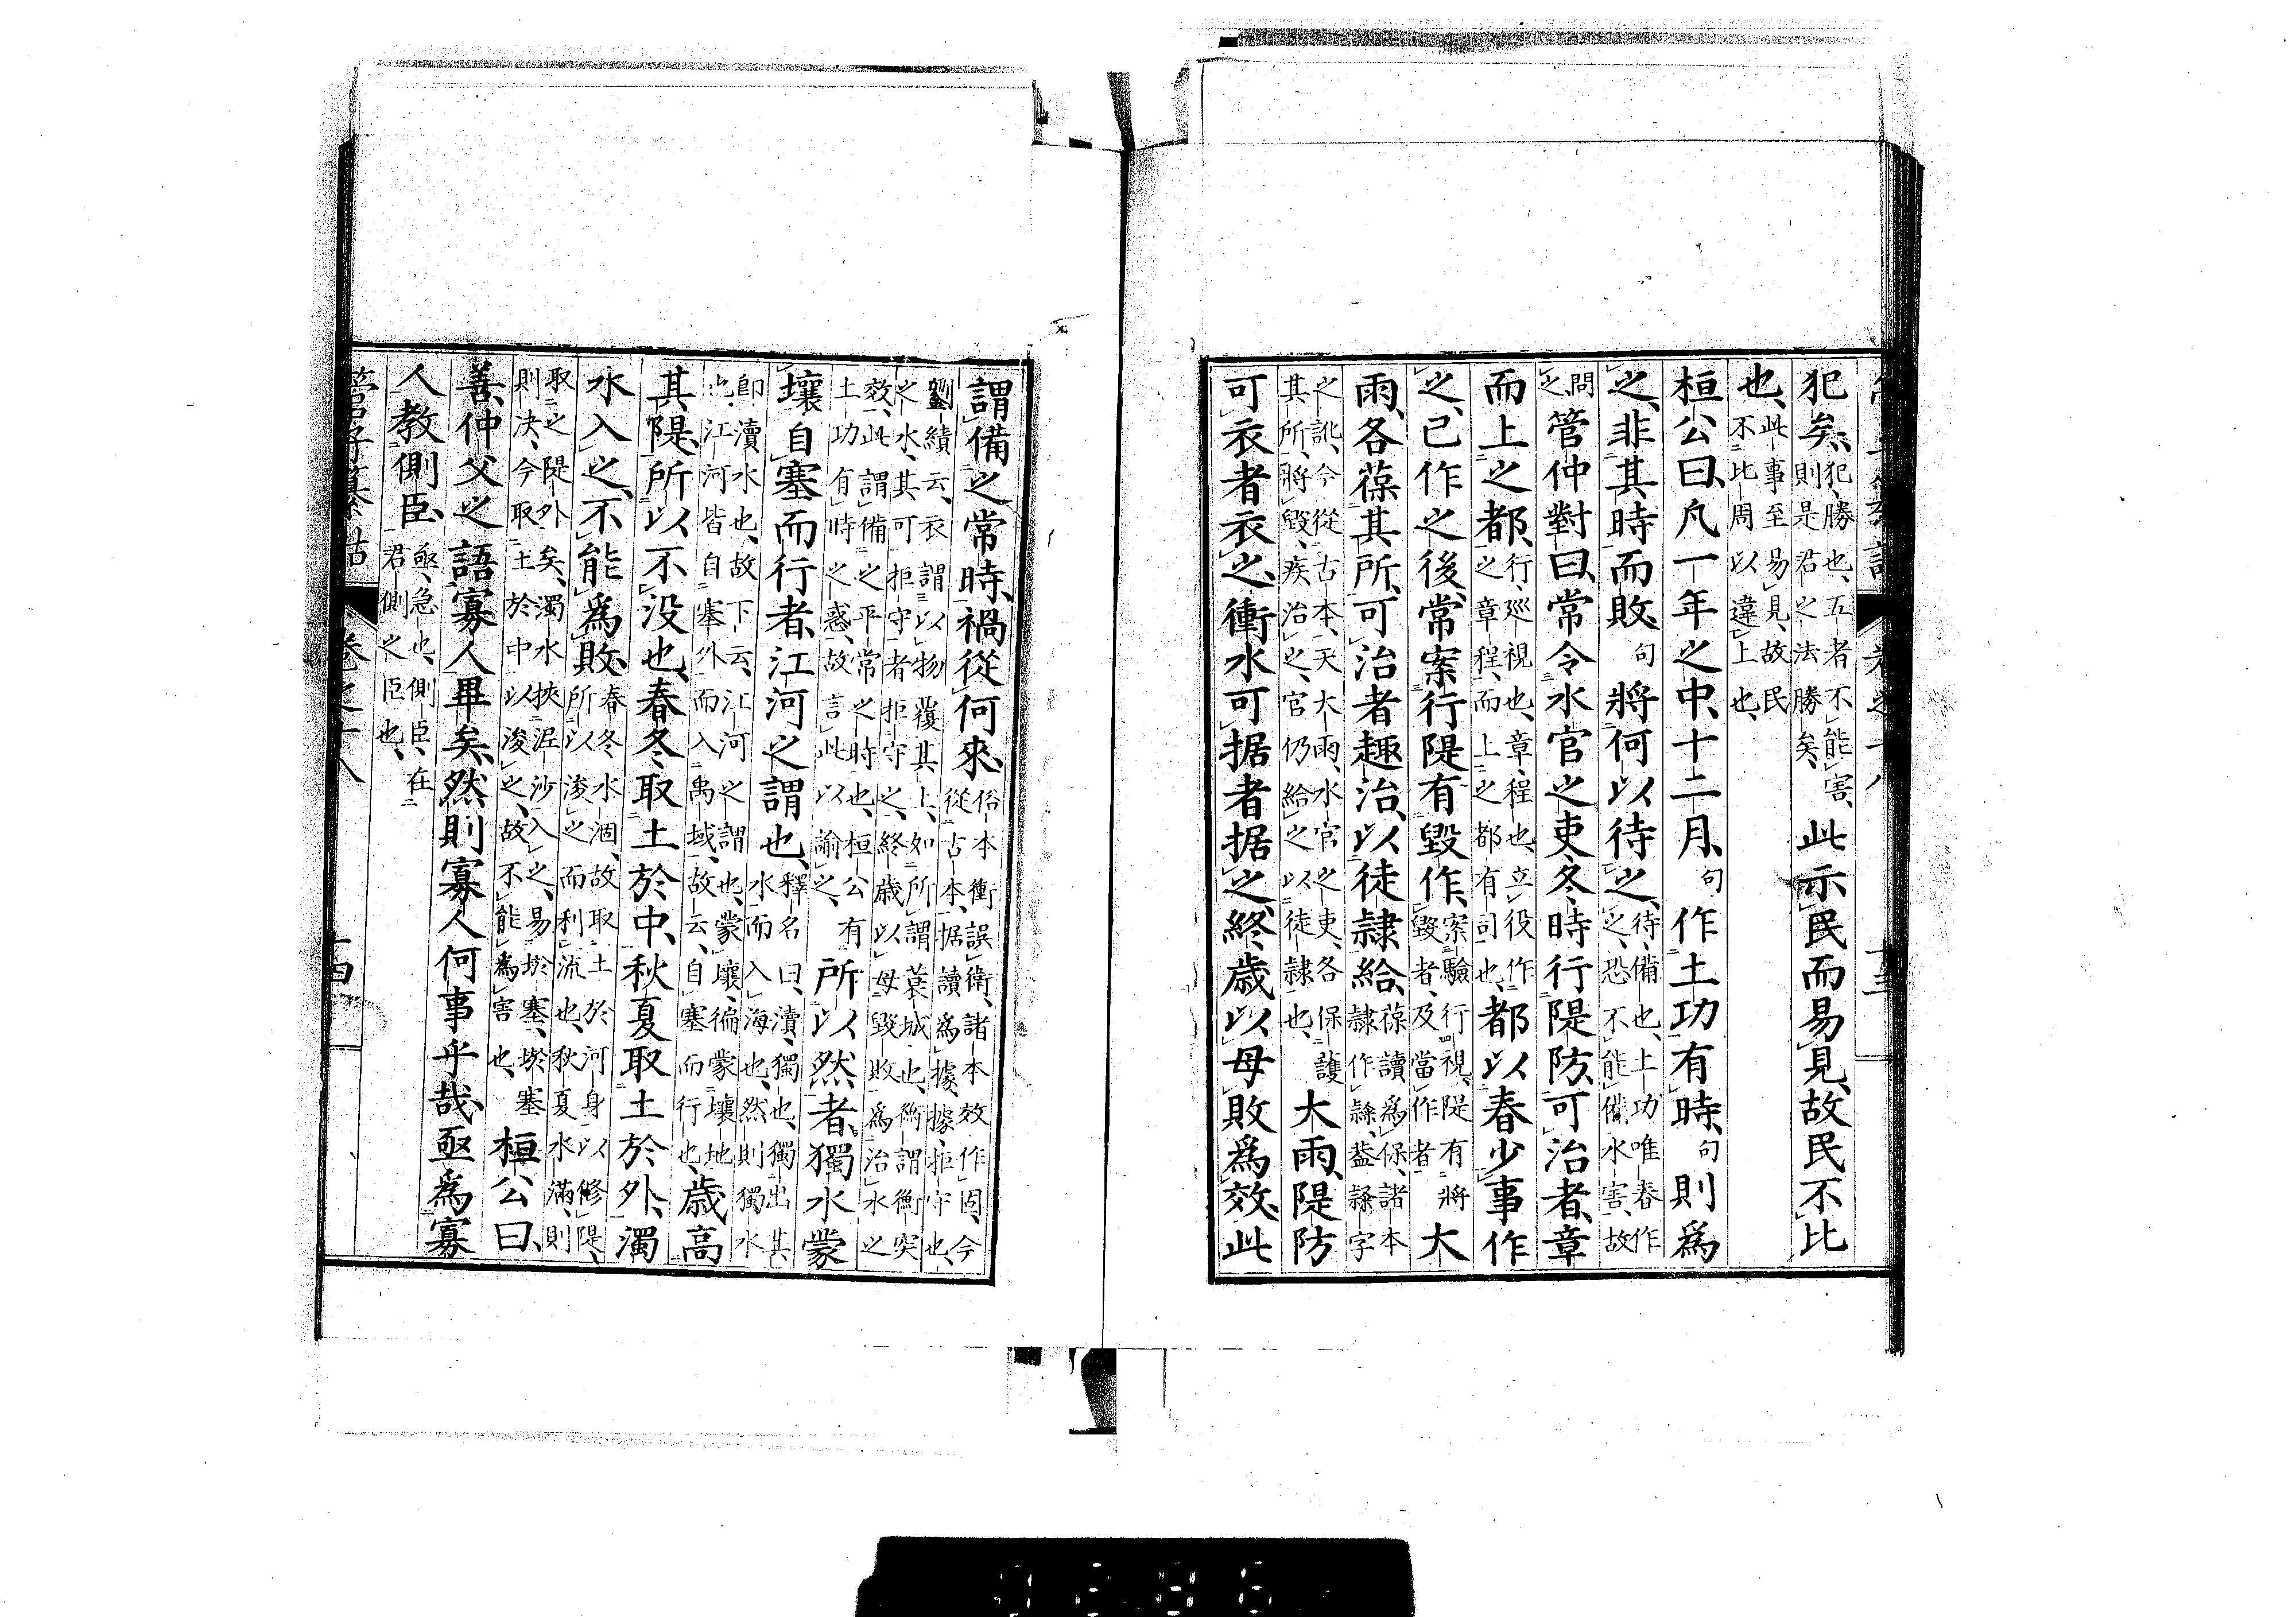 犯矣、犯、勝也、五者不能害、則是君之法勝矣、此示民而易見、故民不比
也、此事至易見、故民不比周以違上也、
桓公曰、凡一年之中、十二月、句作土功有時、句則爲
之、非其時而敗、句將何以待之、待、備也、土功唯春作之、恐不能備水害、故
問之管仲對曰、常令水官之吏、冬時行隄防、可治者、章
而上之都、行、巡視也、章、程也、立役作之章程、而上之都有司也、都以春少事作
之、已作之後、常案行隄有毀作、案驗行視、隄有將毀者、及當作者大
雨、各葆其所、可治者趣治、以徒隸給、葆讀爲保、諸本隸作隷、蓋隸字
之訛、今從古本、天大雨、水官之吏、各保護其所、將毀、疾治之、官仍給之以徒隸也、大雨、隄防
可衣者衣之、衝水可据者据之、終歲以毋敗爲效、此
謂備之常時、禍從何來、俗本衝誤衛、諸本效作固、今從古本、据讀爲據、據、拒守也、
劉績云、衣謂以物覆其上、如所謂蓑城也、衝謂衝突之水、其可拒守者拒守之、終歲以毋毀敗爲治水之
效、此謂備之平常之時也、桓公有土功有時之惑、故言此以諭之、所以然者、獨水蒙
壤自塞而行者、江河之謂也、釋名曰、瀆、獨也、獨出其水而入海也、然則獨水
卽瀆水也、故下云、江河之謂也、蒙壤、徧蒙壤地也、江河皆自塞外而入禹域、故云、自塞而行也、歲高
其隄、所以不沒也、春冬取土於中、秋夏取土於外、濁
水入之、不能爲敗、春冬水涸、故取土於河身以修隄、所以浚之而利流也、秋夏水滿、則
取之隄外矣、濁水挾泥沙入之、易於塞、塞則決、今取土於中以浚之、故不能爲害也、桓公曰、
善、仲父之語寡人畢矣、然則寡人何事乎哉、亟爲寡
人教側臣、亟、急也、側臣、在君側之臣也、
管子纂詁 卷之十八